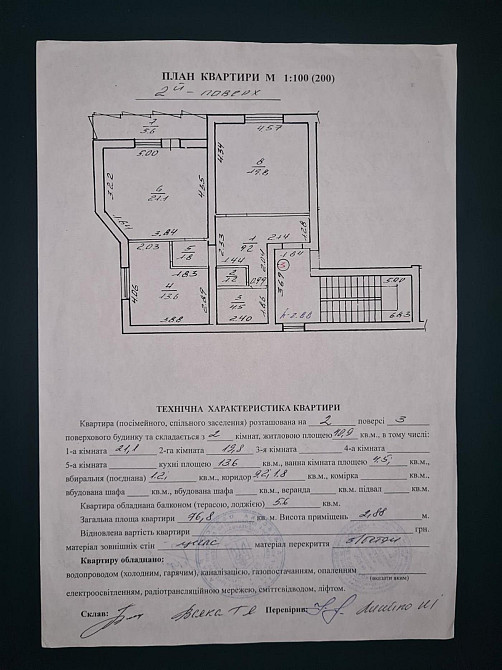 ПЛАН КВАРТИРИ М 1:100 (200)
2й - поверх
7
5.6
5.00
4.57
4.34
8
19.8
3.22
6
21.1
4.35
1.64
3.84
2.03
5
1.8
1.83
2.33
1
9.2
2.14
1.28
1.44
2.04
1.64
2
1.2
0.99
3
3.69
5.00
4.06
4
13.6
2.89
3
4.5
1.86
3.88
2.40
h-2.88
6.83
ТЕХНІЧНА ХАРАКТЕРИСТИКА КВАРТИРИ
Квартира (посімейного, спільного заселення) розташована на 2 поверсі 3
поверхового будинку та складається з 2 кімнат, житловою площею 40,9 кв.м., в тому числі:
1-а кімната 21,1 2-га кімната 19,8 3-я кімната 4-а кімната
5-а кімната кухні площею 13.6 кв.м., ванна кімната площею 4.5, кв.м.,
вбиральня (поєднана) 1.2, кв.м., коридор 9.2, 1.8 кв.м., комірка кв.м.,
вбудована шафа кв.м., вбудована шафа кв.м., веранда кв.м. підвал кв.м.
Квартира обладнана балконом (терасою, лоджією) 5.6 кв.м.
Загальна площа квартири 76,8 кв.м. Висота приміщень 2,88 м.
Відновлена вартість квартири грн.
матеріал зовнішніх стін матеріал перекриття з/бетон
Квартиру обладнано:
водопроводом (холодним, гарячим), каналізацією, газопостачанням, опаленням
(вказати яким)
електроосвітленням, радіотрансляційною мережею, сміттєвідводом, ліфтом.
Склав: Перевірив: